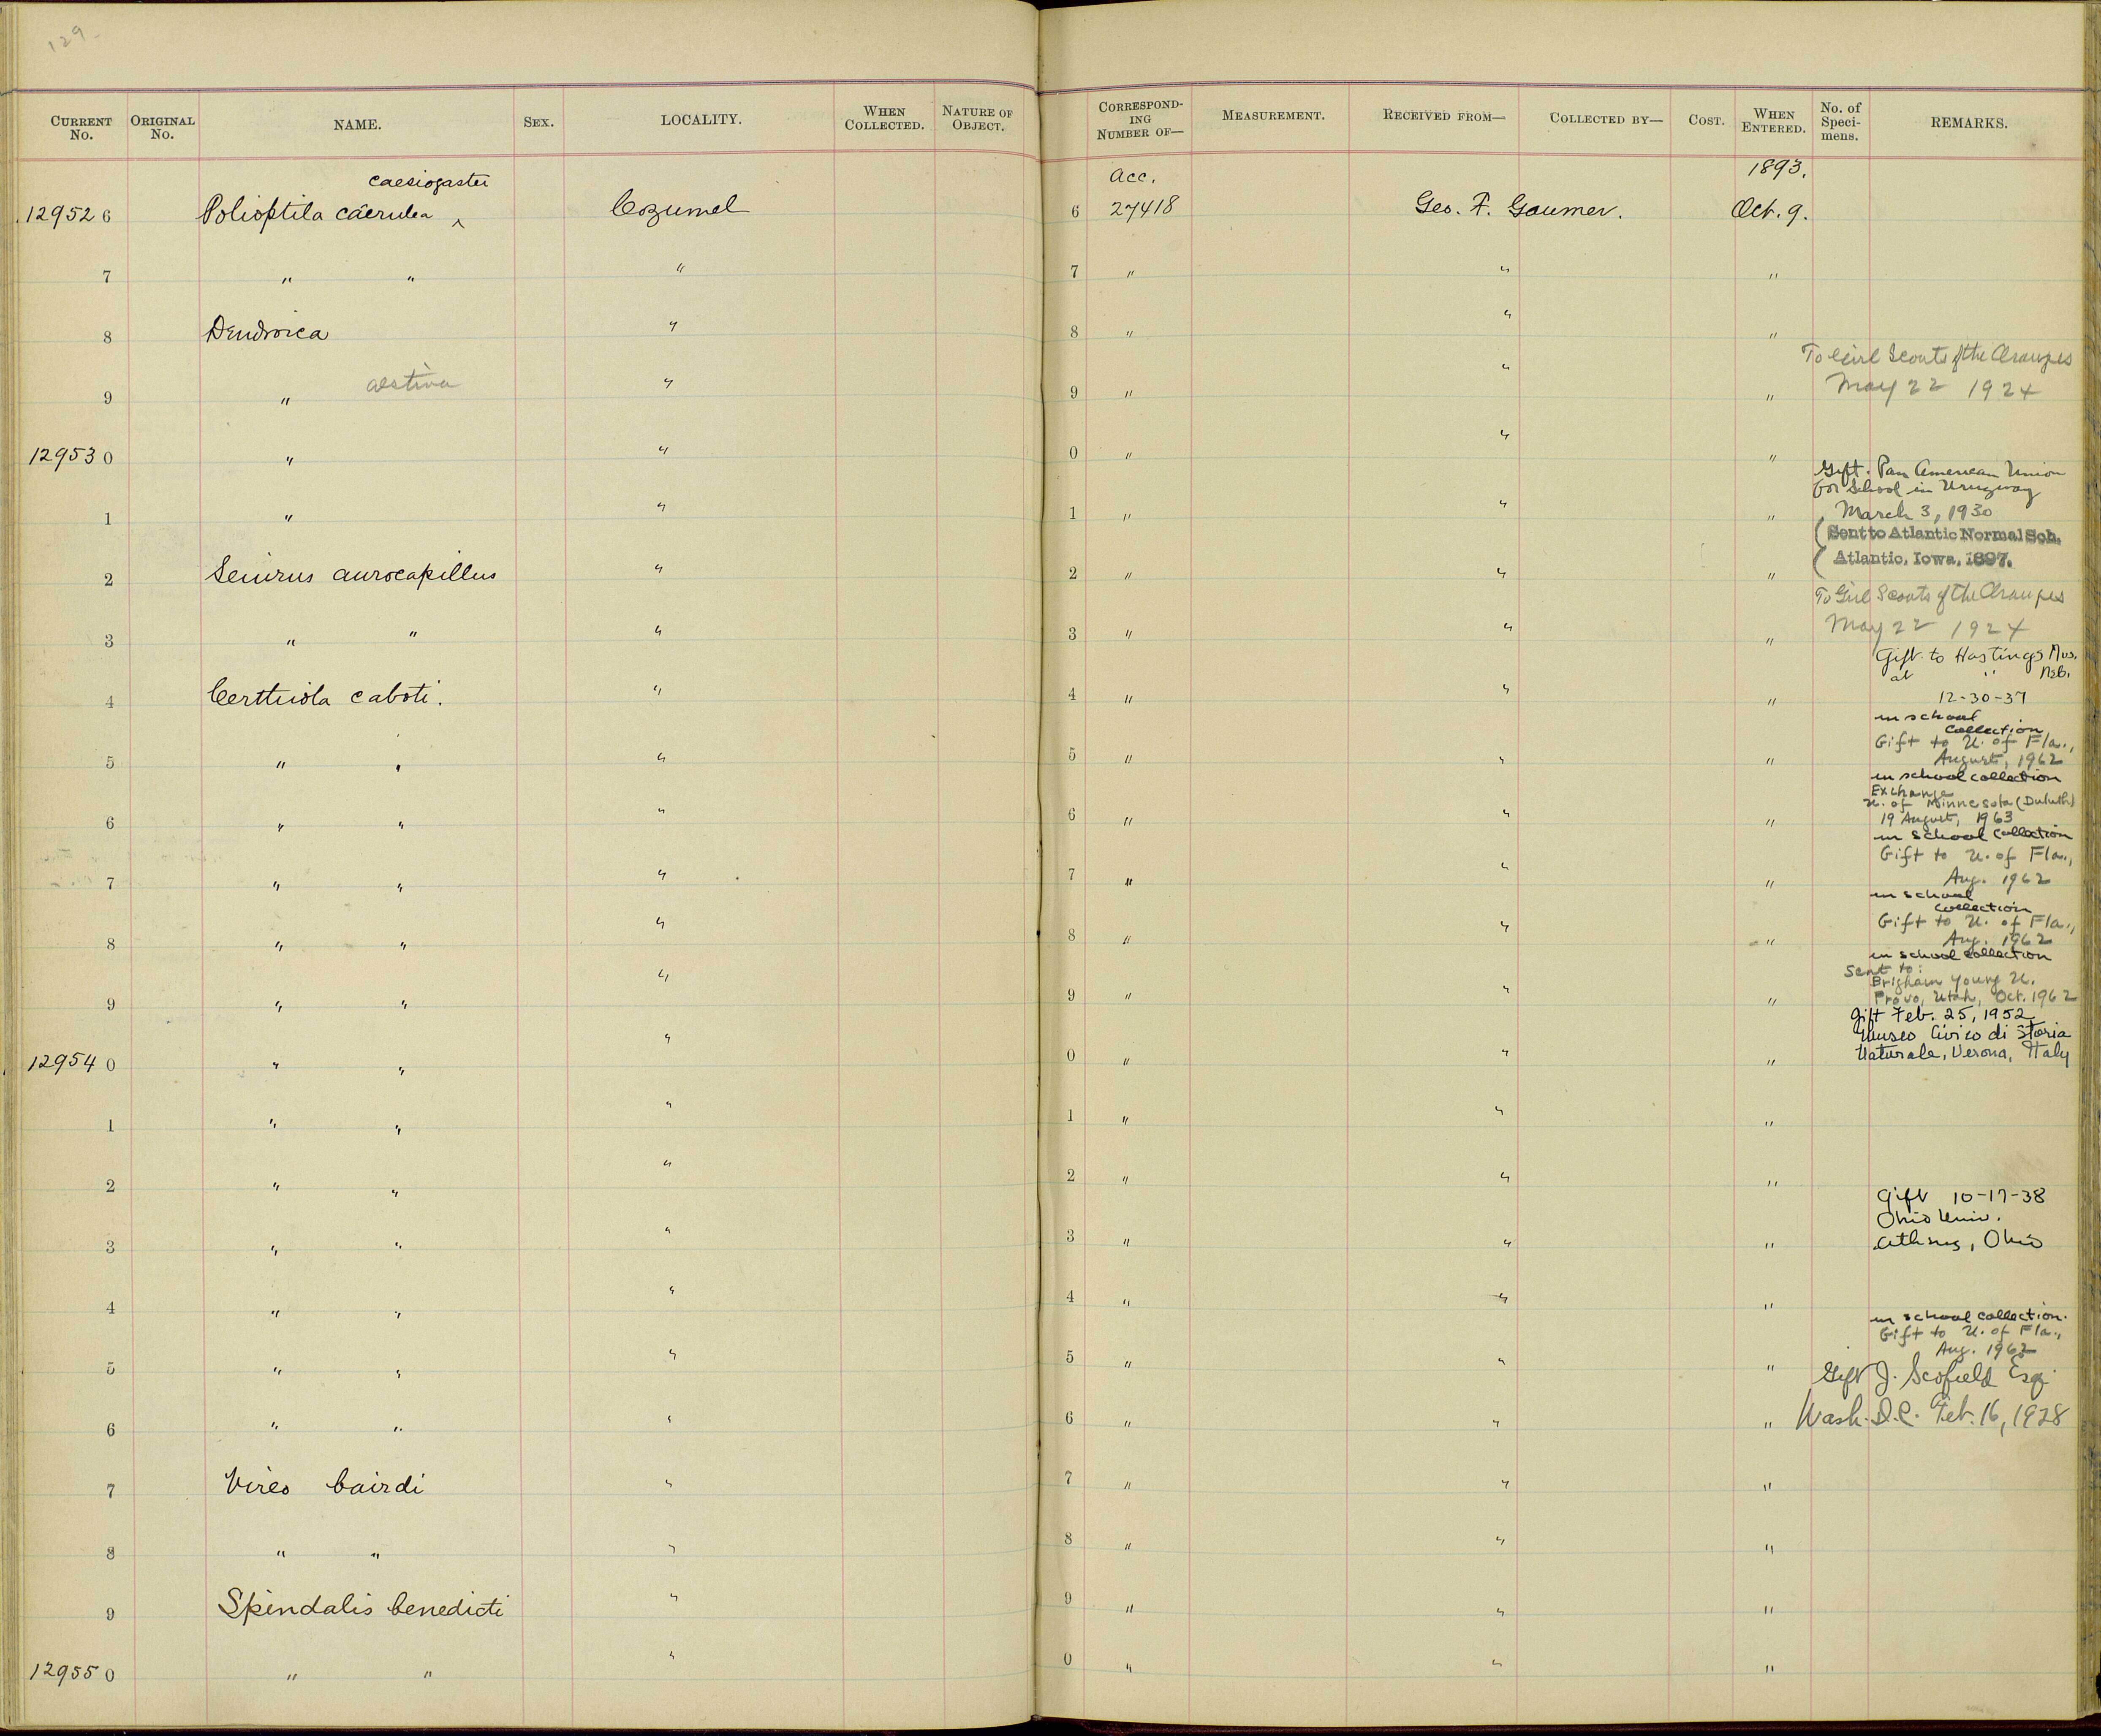 129-
CURRENT No. ORIGINAL No. NAME. SEX. LOCALITY. WHEN COLLECTED. NATURE OF OBJECT. CORRESPONDING NUMBER OF— MEASUREMENT. RECEIVED FROM— COLLECTED BY— COST. WHEN ENTERED. No. of Specimens. REMARKS.
caesiogaster Acc. 1893.
12952 6 Polioptila caerulea ‸ Cozumel 6 27418 Geo. F. Gaumer. Oct. 9.
7 " " " 7 " " "
8 Dendroica " 8 " " "
To Girl Scouts of the
9 " aestiva " 9 " " " May 22 1924
12953 0 " " 0 " " "
Gift. Pan American Union
for School in Uruguay
1 " " 1 " " " March 3, 1930
Sent to Atlantic Normal Sch.
Atlantic, Iowa, 1897.
2 Seiurus aurocapillus " 2 " " "
To Girl Scouts of the
3 " " " 3 " " " May 22 1924
Gift to Hastings Mus.
at " Neb.
4 Certhiola caboti. " 4 " " " 12-30-37
in school
collection
Gift to U. of Fla.,
5 " " " 5 " " " August, 1962
in school collection
Exchange
U. of Minnesota (Duluth)
6 " " " 6 " " " 19 August, 1963
in school collection
Gift to U. of Fla.,
7 " " " 7 " " " Aug. 1962
in school
collection
Gift to U. of Fla.,
8 " " " 8 " " " Aug. 1962
in school collection
Sent to:
Brigham Young U.
9 " " " 9 " " " Provo, Utah, Oct. 1962
Gift Feb. 25, 1952
Museo Civico di Storia
12954 0 " " " 0 " " " Naturale, Verona, Italy
1 " " " 1 " " "
2 " " " 2 " " "
Gift 10-17-38
Ohio Univ.
3 " " " 3 " " " Athens, Ohio
4 " " " 4 " " "
in school collection.
Gift to U. of Fla.,
Aug. 1962
5 " " " 5 " " "
Gift J. Scofield Esq.
6 " " " 6 " " " Wash. D.C. Feb. 16, 1928
7 Vireo bairdi " 7 " " "
8 " " " 8 " " "
9 Spindalis benedicti " 9 " " "
12955 0 " " " 0 " " "